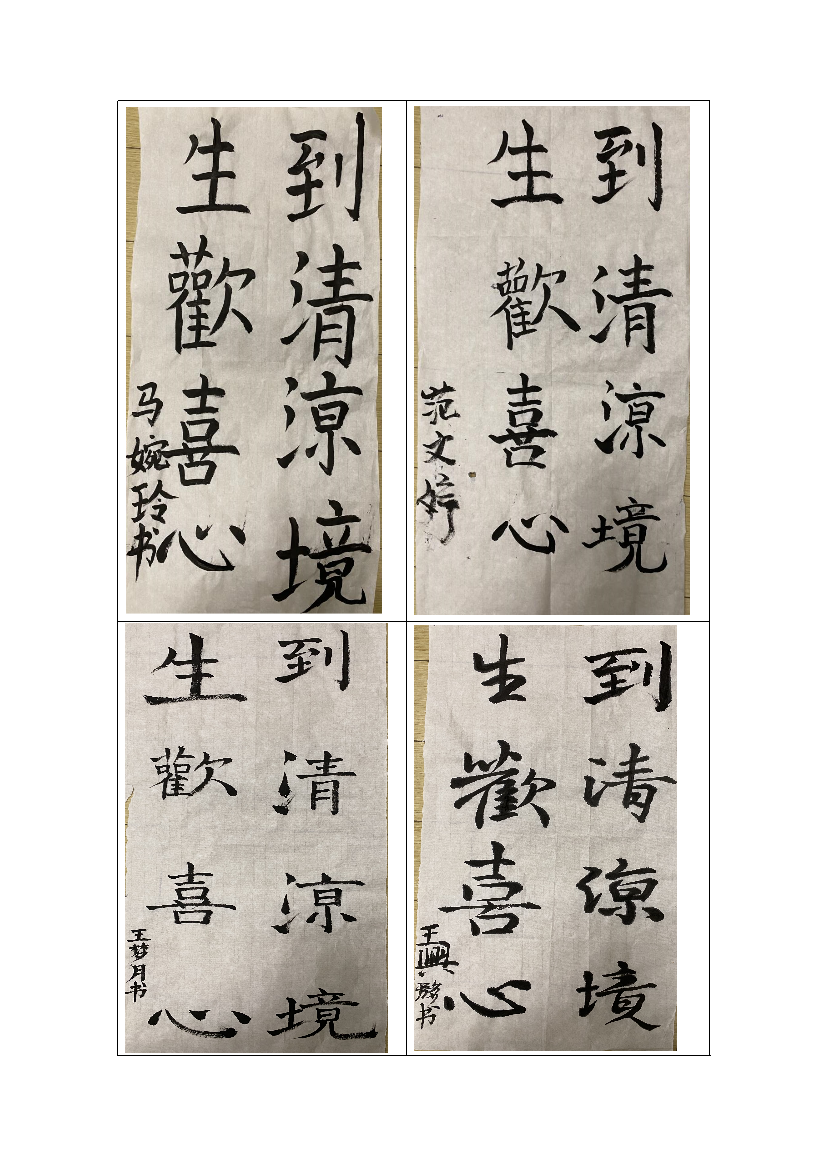 到清涼境
生歡喜心
马婉玲书
到清涼境
生歡喜心
范文婷
到清涼境
生歡喜心
王梦月书
到清涼境
生歡喜心
王興 书